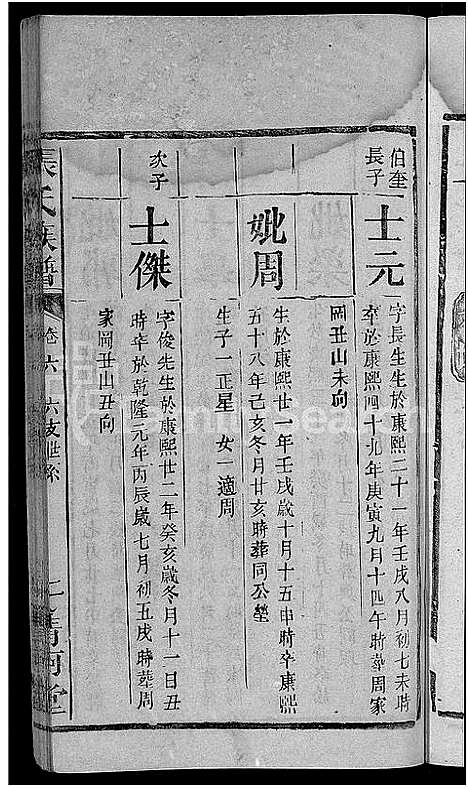 伯奎長子
士元
字長生生於康熙二十一年壬戌八月初七未時
卒於康熙四十九年庚寅九月十四午時葬周家
岡丑山未向
妣周
生於康熙廿一年壬戌歲十月十五申時卒康熙
五十八年己亥冬月廿亥時葬同公塋
生子一正星 女一適周
次子
士傑
字俊先生於康熙廿二年癸亥歲冬月十一日丑
時卒於乾隆元年丙辰歲七月初五戌時葬周
家岡丑山丑向
張氏族譜
卷六 六支世系
清河堂